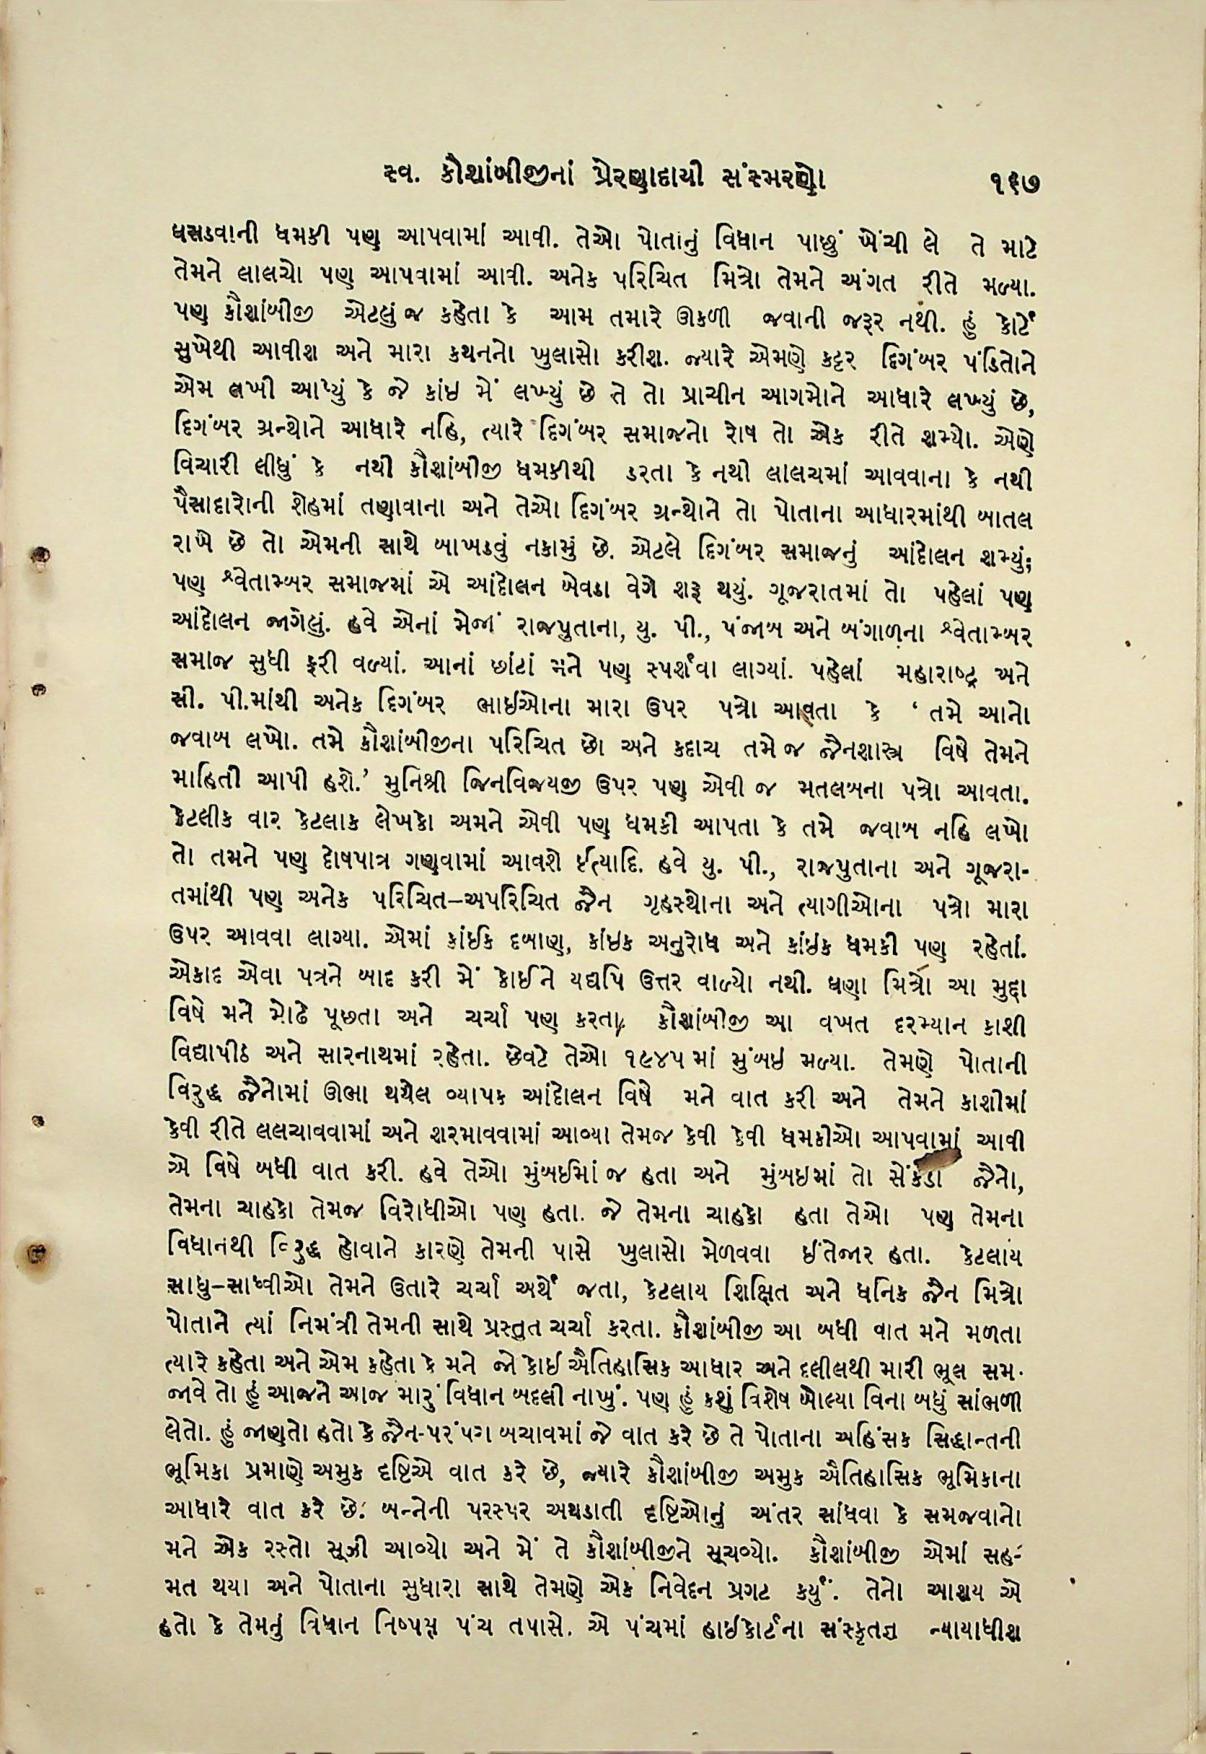 સ્વ. કૌશાંબીજીનાં પ્રેરણાદાયી સંસ્મરણો ૧૬૭
ધસડવાની ધમકી પણ આપવામાં આવી. તેઓ પોતાનું વિધાન પાછું ખેંચી લે તે માટે
તેમને લાલચો પણ આપવામાં આવી. અનેક પરિચિત મિત્રો તેમને અંગત રીતે મળ્યા.
પણ કૌશાંબીજી એટલું જ કહેતા કે આમ તમારે ઊકળી જવાની જરૂર નથી. હું કોર્ટે
સુખેથી આવીશ અને મારા કથનનો ખુલાસો કરીશ. જ્યારે એમણે કટ્ટર દિગંબર પંડિતોને
એમ લખી આપ્યું કે જે કાંઇ મેં લખ્યું છે તે તો પ્રાચીન આગમોને આધારે લખ્યું છે,
દિગંબર ગ્રન્થોને આધારે નહિ, ત્યારે દિગંબર સમાજનો રોષ તો એક રીતે શમ્યો. એણે
વિચારી લીધું કે નથી કૌશાંબીજી ધમકીથી ડરતા કે નથી લાલચમાં આવવાના કે નથી
પૈસાદારોની શેહમાં તણાવાના અને તેઓ દિગંબર ગ્રન્થોને તો પોતાના આધારમાંથી બાતલ
રાખે છે તો એમની સાથે બાખડવું નકામું છે. એટલે દિગંબર સમાજનું આંદોલન શમ્યું;
પણ શ્વેતામ્બર સમાજમાં એ આંદોલન બેવડા વેગે શરૂ થયું. ગૂજરાતમાં તો પહેલાં પણ
આંદોલન જાગેલું. હવે એનાં મોજાં રાજપુતાના, યુ. પી., પંજાબ અને બંગાળના શ્વેતામ્બર
સમાજ સુધી ફરી વળ્યાં. આનાં છાંટાં મને પણ સ્પર્શવા લાગ્યાં. પહેલાં મહારાષ્ટ્ર અને
સી. પી.માંથી અનેક દિગંબર ભાઇઓના મારા ઉપર પત્રો આવતા કે ‘ તમે આનો
જવાબ લખો. તમે કૌશાંબીજીના પરિચિત છો અને કદાચ તમે જ જૈનશાસ્ત્ર વિષે તેમને
માહિતી આપી હશે.’ મુનિશ્રી જિનવિજયજી ઉપર પણ એવી જ મતલબના પત્રો આવતા.
કેટલીક વાર કેટલાક લેખકો અમને એવી પણ ધમકી આપતા કે તમે જવાબ નહિ લખો
તો તમને પણ દોષપાત્ર ગણવામાં આવશે ઈત્યાદિ. હવે યુ. પી., રાજપુતાના અને ગૂજરા-
તમાંથી પણ અનેક પરિચિત-અપરિચિત જૈન ગૃહસ્થોના અને ત્યાગીઓના પત્રો મારા
ઉપર આવવા લાગ્યા. એમાં કાંઇક દબાણ, કાંઇક અનુરોધ અને કાંઇક ધમકી પણ રહેતાં.
એકાદ એવા પત્રને બાદ કરી મેં કોઈને યદ્યપિ ઉત્તર વાળ્યો નથી. ઘણા મિત્રો આ મુદ્દા
વિષે મને મોઢે પૂછતા અને ચર્ચા પણ કરતા. કૌશાંબીજી આ વખત દરમ્યાન કાશી
વિદ્યાપીઠ અને સારનાથમાં રહેતા. છેવટે તેઓ ૧૯૪૫ માં મુંબઇ મળ્યા. તેમણે પોતાની
વિરુદ્ધ જૈનોમાં ઊભા થયેલ વ્યાપક આંદોલન વિષે મને વાત કરી અને તેમને કાશીમાં
કેવી રીતે લલચાવવામાં અને શરમાવવામાં આવ્યા તેમજ કેવી કેવી ધમકીઓ આપવામાં આવી
એ વિષે બધી વાત કરી. હવે તેઓ મુંબઇમાં જ હતા અને મુંબઇમાં તો સેંકડો જૈનો,
તેમના ચાહકો તેમજ વિરોધીઓ પણ હતા. જે તેમના ચાહકો હતા તેઓ પણ તેમના
વિધાનથી વિરુદ્ધ હોવાને કારણે તેમની પાસે ખુલાસો મેળવવા ઈંતેજાર હતા. કેટલાંય
સાધુ-સાધ્વીઓ તેમને ઉતારે ચર્ચા અર્થે જતા, કેટલાય શિક્ષિત અને ધનિક જૈન મિત્રો
પોતાને ત્યાં નિમંત્રી તેમની સાથે પ્રસ્તુત ચર્ચા કરતા. કૌશાંબીજી આ બધી વાત મને મળતા
ત્યારે કહેતા અને એમ કહેતા કે મને જો કોઇ ઐતિહાસિક આધાર અને દલીલથી મારી ભૂલ સમ-
જાવે તો હું આજને આજ મારું વિધાન બદલી નાખું. પણ હું કશું વિશેષ બોલ્યા વિના બધું સાંભળી
લેતો. હું જાણતો હતો કે જૈન-પરંપરા બચાવમાં જે વાત કરે છે તે પોતાના અહિંસક સિદ્ધાન્તની
ભૂમિકા પ્રમાણે અમુક દૃષ્ટિએ વાત કરે છે, જ્યારે કૌશાંબીજી અમુક ઐતિહાસિક ભૂમિકાના
આધારે વાત કરે છે. બન્નેની પરસ્પર અથડાતી દૃષ્ટિઓનું અંતર સાંધવા કે સમજવાનો
મને એક રસ્તો સૂઝી આવ્યો અને મેં તે કૌશાંબીજીને સૂચવ્યો. કૌશાંબીજી એમાં સહ-
મત થયા અને પોતાના સુધારા સાથે તેમણે એક નિવેદન પ્રગટ કર્યું. તેનો આશય એ
હતો કે તેમનું વિધાન નિષ્પક્ષ પંચ તપાસે. એ પંચમાં હાઈકોર્ટના સંસ્કૃતજ્ઞ ન્યાયાધીશ